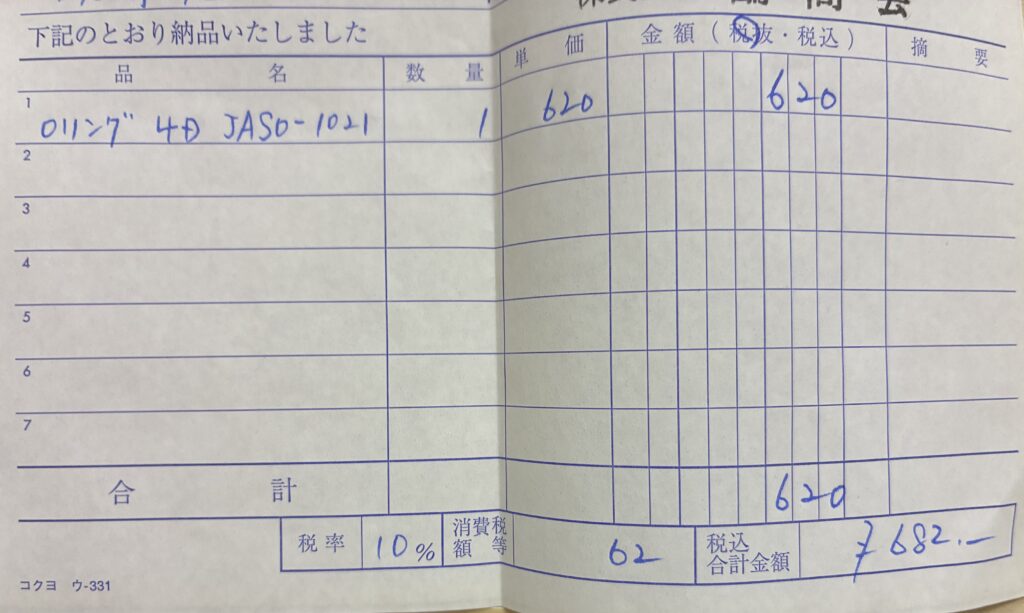 下記のとおり納品いたしました
品名 数量 単価 金額(税抜・税込) 摘要
1 Oリング 4D JASO-1021 1 620 620
2
3
4
5
6
7
合計 620
税率 10% 消費税額等 62 税込合計金額 ¥682.-
コクヨ ウ-331